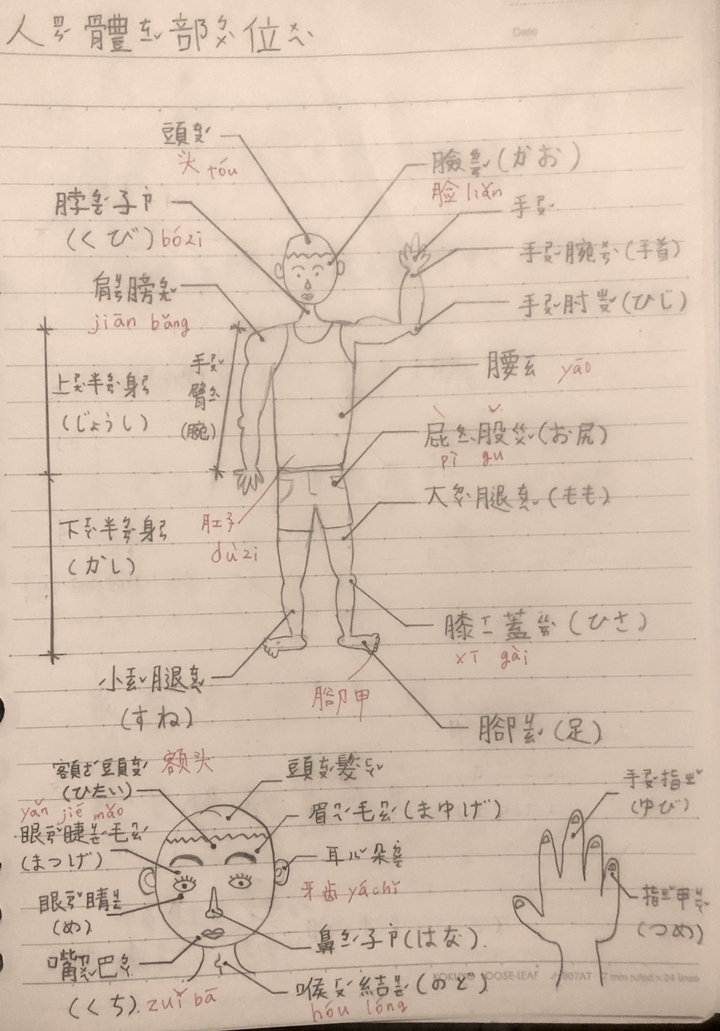 人ㄖㄣˊ體ㄊㄧˇ部ㄅㄨˋ位ㄨㄟˋ
Date
頭ㄊㄡˊ
头 tóu
臉ㄌㄧㄢˇ(かお)
脸 liǎn
手ㄕㄡˇ
脖ㄅㄛˊ子ㄗˇ
(くび) bózi
手ㄕㄡˇ腕ㄨㄢˋ(手首)
肩ㄐㄧㄢ膀ㄅㄤˇ
jiān bǎng
手ㄕㄡˇ肘ㄓㄡˇ(ひじ)
上ㄕㄤˋ半ㄅㄢˋ身ㄕㄣ
(じょうし)
手ㄕㄡˇ
臂ㄅㄧˋ
(腕)
腰ㄧㄠ yāo
屁ㄆㄧˋ股ㄍㄨˇ(お尻)
pì gu
大ㄉㄚˋ腿ㄊㄨㄟˇ(もも)
下ㄒㄧㄚˋ半ㄅㄢˋ身ㄕㄣ
(かし)
肚子
dùzi
膝ㄒㄧ蓋ㄍㄞˋ(ひさ)
xī gài
小ㄒㄧㄠˇ腿ㄊㄨㄟˇ
(すね)
腳甲
腳ㄐㄧㄠˇ(足)
額ㄜˊ頭ㄊㄡˊ 额头
(ひたい)
頭ㄊㄡˊ髮ㄈㄚˇ
yǎn jié máo
眼ㄧㄢˇ睫ㄐㄧㄝˊ毛ㄇㄠˊ
(まつげ)
眉ㄇㄟˊ毛ㄇㄠˊ(まゆげ)
耳ㄦˇ朵ㄉㄨㄛ˙
牙齿 yáchǐ
眼ㄧㄢˇ睛ㄐㄧㄥ
(め)
鼻ㄅㄧˊ子ㄗˇ(はな).
嘴ㄗㄨㄟˇ巴ㄅㄚ
(くち). zuǐ bā
喉ㄏㄡˊ結ㄐㄧㄝˊ(のど)
hóu lóng
手ㄕㄡˇ指ㄓˇ
(ゆび)
指ㄓˇ甲ㄐㄧㄚˇ
(つめ)
KOKUYO LOOSE-LEAF 807AT 7 mm ruled × 24 lines